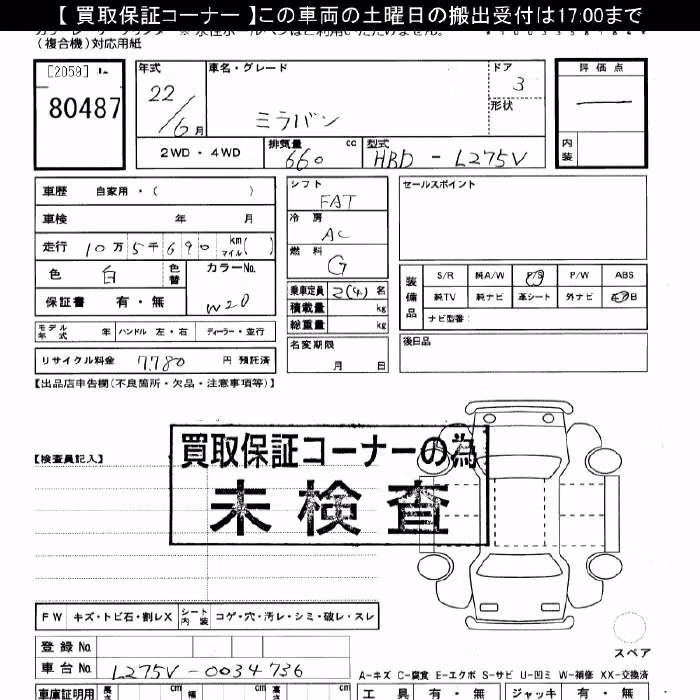 【 買取保証コーナー 】この車両の土曜日の搬出受付は17:00まで
(複合機)対応用紙
[2059]
80487
年式
22/6月
車名・グレード
ミラバン
ドア
3
形状
評価点
内装
2WD ・ 4WD
排気量
660 cc
型式
HBD - L275V
車歴 自家用・( )
車検 年 月
走行 10万5千690 km マイル( )
色 白 色替
カラーNo.
W20
保証書 有・無
モデル年式 年 ハンドル 左・右 ディーラー・並行
リサイクル料金 7,780 円 預託済
シフト
FAT
冷房
AC
燃料
G
乗車定員 2(4) 名
積載量 kg
総重量 kg
名変期限
月 日
セールスポイント
装備品
S/R 純A/W P/S P/W ABS
純TV 純ナビ 革シート 外ナビ
ナビ型番:
後日品
【出品店申告欄(不良箇所・欠品・注意事項等)】
【検査員記入】
買取保証コーナーの為
未検査
FW キズ・トビ石・割レX シート内装 コゲ・穴・汚レ・シミ・破レ・スレ
登録No.
車台No. L275V-0034736
スペア
A-キズ C-腐食 E-エクボ S-サビ U-凹ミ W-補修 XX-交換済
車庫証明用 長さ cm 幅 cm 高さ cm
工具 有・無 ジャッキ 有・無